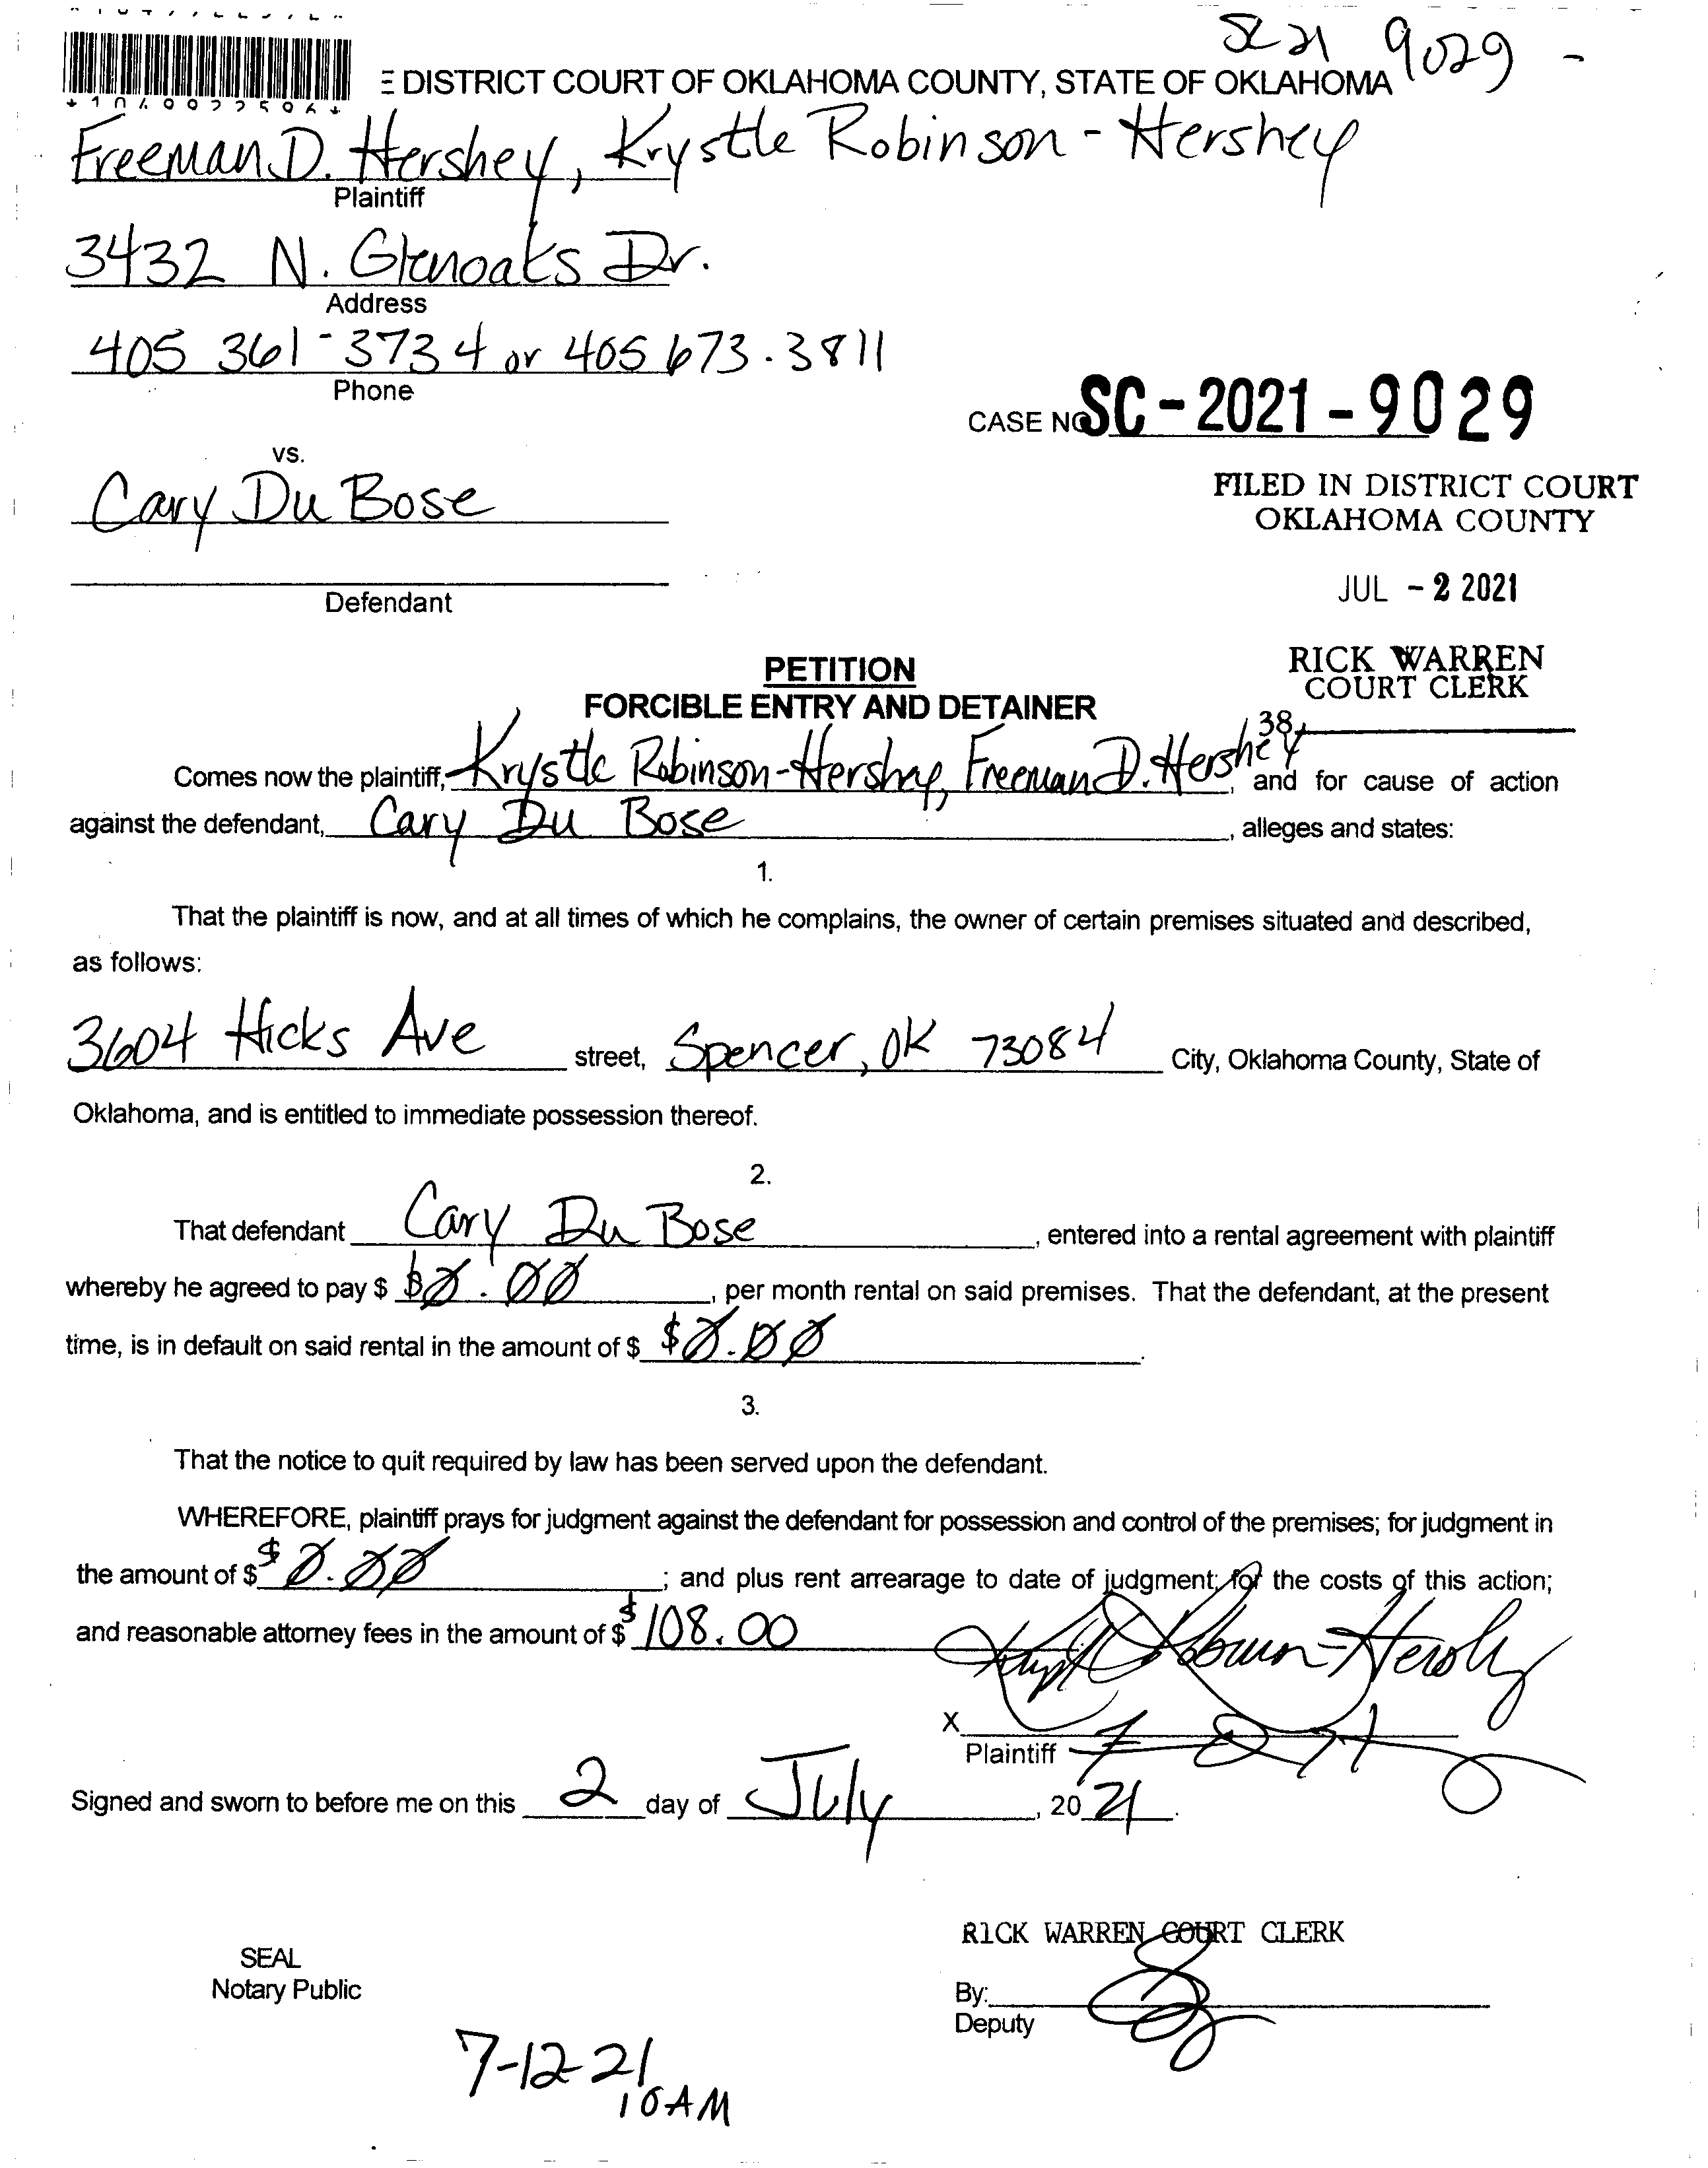 SC 21 9029 -
E DISTRICT COURT OF OKLAHOMA COUNTY, STATE OF OKLAHOMA
Freeman D. Hershey, Krystle Robinson-Hershey
Plaintiff
3432 N. Glenoaks Dr.
Address
405 361-3734 or 405 673.3811
Phone
CASE NO SC-2021-9029
vs.
Cary Du Bose
FILED IN DISTRICT COURT
OKLAHOMA COUNTY
Defendant
JUL - 2 2021
RICK WARREN
COURT CLERK
38
PETITION
FORCIBLE ENTRY AND DETAINER
Comes now the plaintiff, Krystle Robinson-Hershey, Freeman D. Hershey, and for cause of action
against the defendant, Cary Du Bose, alleges and states:
1.
That the plaintiff is now, and at all times of which he complains, the owner of certain premises situated and described,
as follows:
3604 Hicks Ave street, Spencer, OK 73084 City, Oklahoma County, State of
Oklahoma, and is entitled to immediate possession thereof.
2.
That defendant Cary Du Bose, entered into a rental agreement with plaintiff
whereby he agreed to pay $ $0.00, per month rental on said premises. That the defendant, at the present
time, is in default on said rental in the amount of $ $0.00.
3.
That the notice to quit required by law has been served upon the defendant.
WHEREFORE, plaintiff prays for judgment against the defendant for possession and control of the premises; for judgment in
the amount of $ $0.00; and plus rent arrearage to date of judgment; for the costs of this action;
and reasonable attorney fees in the amount of $ $108.00
X
Plaintiff
Signed and sworn to before me on this 2 day of July, 2021.
RICK WARREN COURT CLERK
SEAL
Notary Public
By:
Deputy
7-12-21
10AM